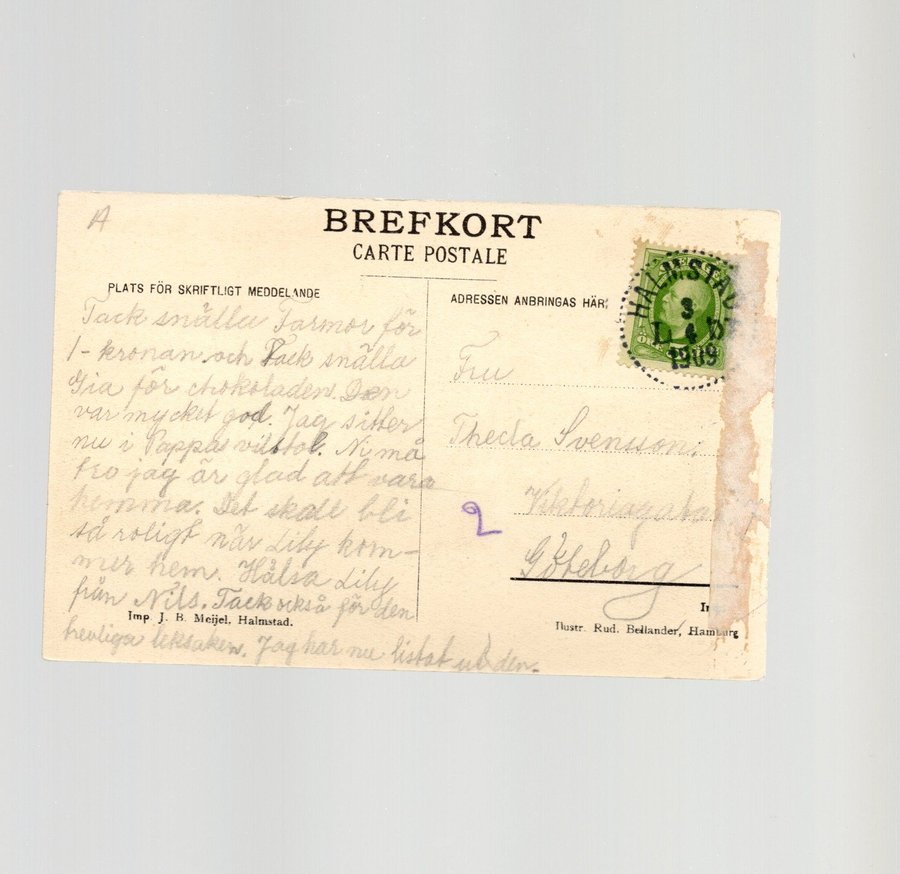 A
BREFKORT
CARTE POSTALE
PLATS FÖR SKRIFTLIGT MEDDELANDE
Tack snälla Farmor för
1- kronan och Tack snälla
Gia för chokoladen. Den
var mycket god. Jag sitter
nu i Pappas vilstol. Ni må
tro jag är glad att vara
hemma. Det skall bli
så roligt när Lily kom-
mer hem. Hälsa Lily
från Nils. Tack också för den
Imp. J. B. Meijel, Halmstad.
trevliga leksaken. Jag har nu listat ut den.
ADRESSEN ANBRINGAS HÄR:
HALMSTAD
3
4
1909
ÖRE
Fru
Theda Svenson.
Viktoriagatan
2
Göteborg
Illustr. Rud. Bellander, Hamburg